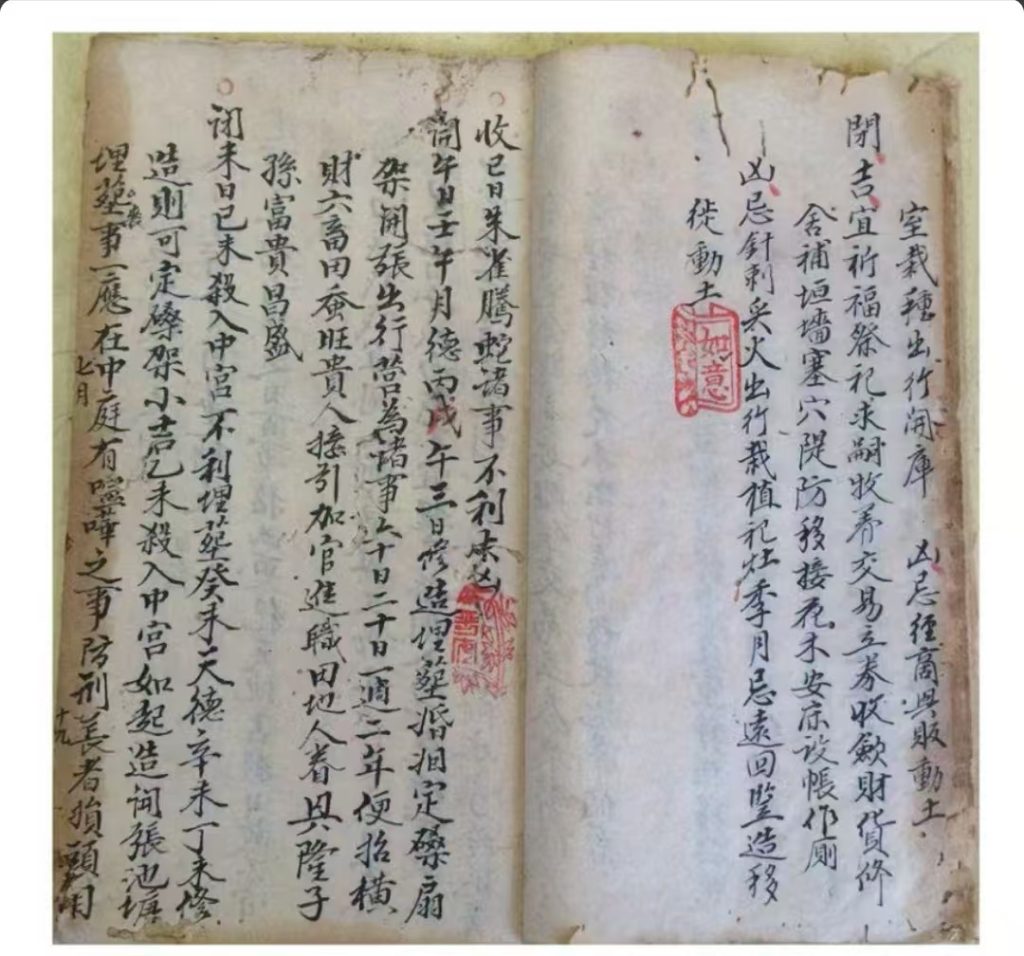 室栽種出行開庫 凶忌經商興販動土
閉吉宜祈福祭祀求嗣牧养交易立券收歛財貨修
舍補垣墻塞穴隄防移接花木安床设帳作厠
凶忌針刺灸火出行栽植祀灶季月忌遠回竪造移
徙動土
如意
收巳日朱雀騰蛇诸事不利
開午日壬午月德丙戊午三日修造埋塟婚姻定磉扇
架開張出行营為诸事六十日二十日一週二年便招橫
財六畜田蚕旺貴人接引加官進職田地人眷興隆子
孫富貴昌盛
闭未日己未殺入中宫不利埋塟癸未天德辛未丁未修
造則可定磉架小吉乙未殺入中宫如起造開張池塘
埋塟事一應在中庭有喧嘩之事防刑
七月
十九